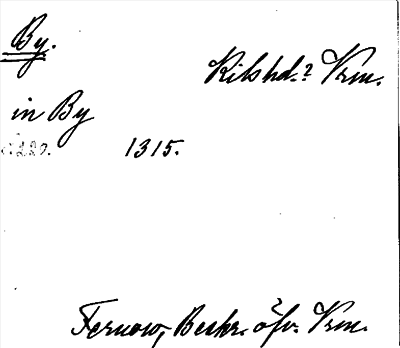 By.
Kils hd.? Vrm.
in By
220. 1315.
Fernow, Beskr. öfv. Vrm.